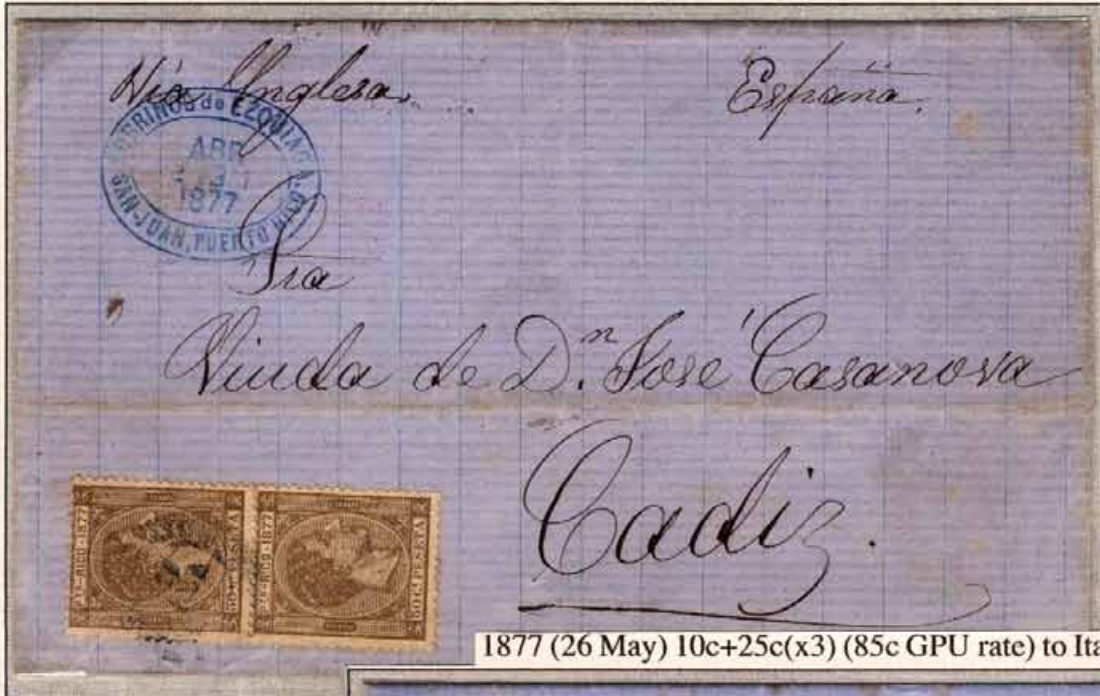 Via Inglesa.
España.
SOBRINOS de EZQUIAGA
ABR
1877
SAN-JUAN, PUERTO RICO
Sra
Viuda de D.n José Casanova
Cadiz.
PTO-RICO-1877
50 CS PESETA
PTO-RICO-1877
50 CS PESETA
1877 (26 May) 10c+25c(x3) (85c GPU rate) to Ita